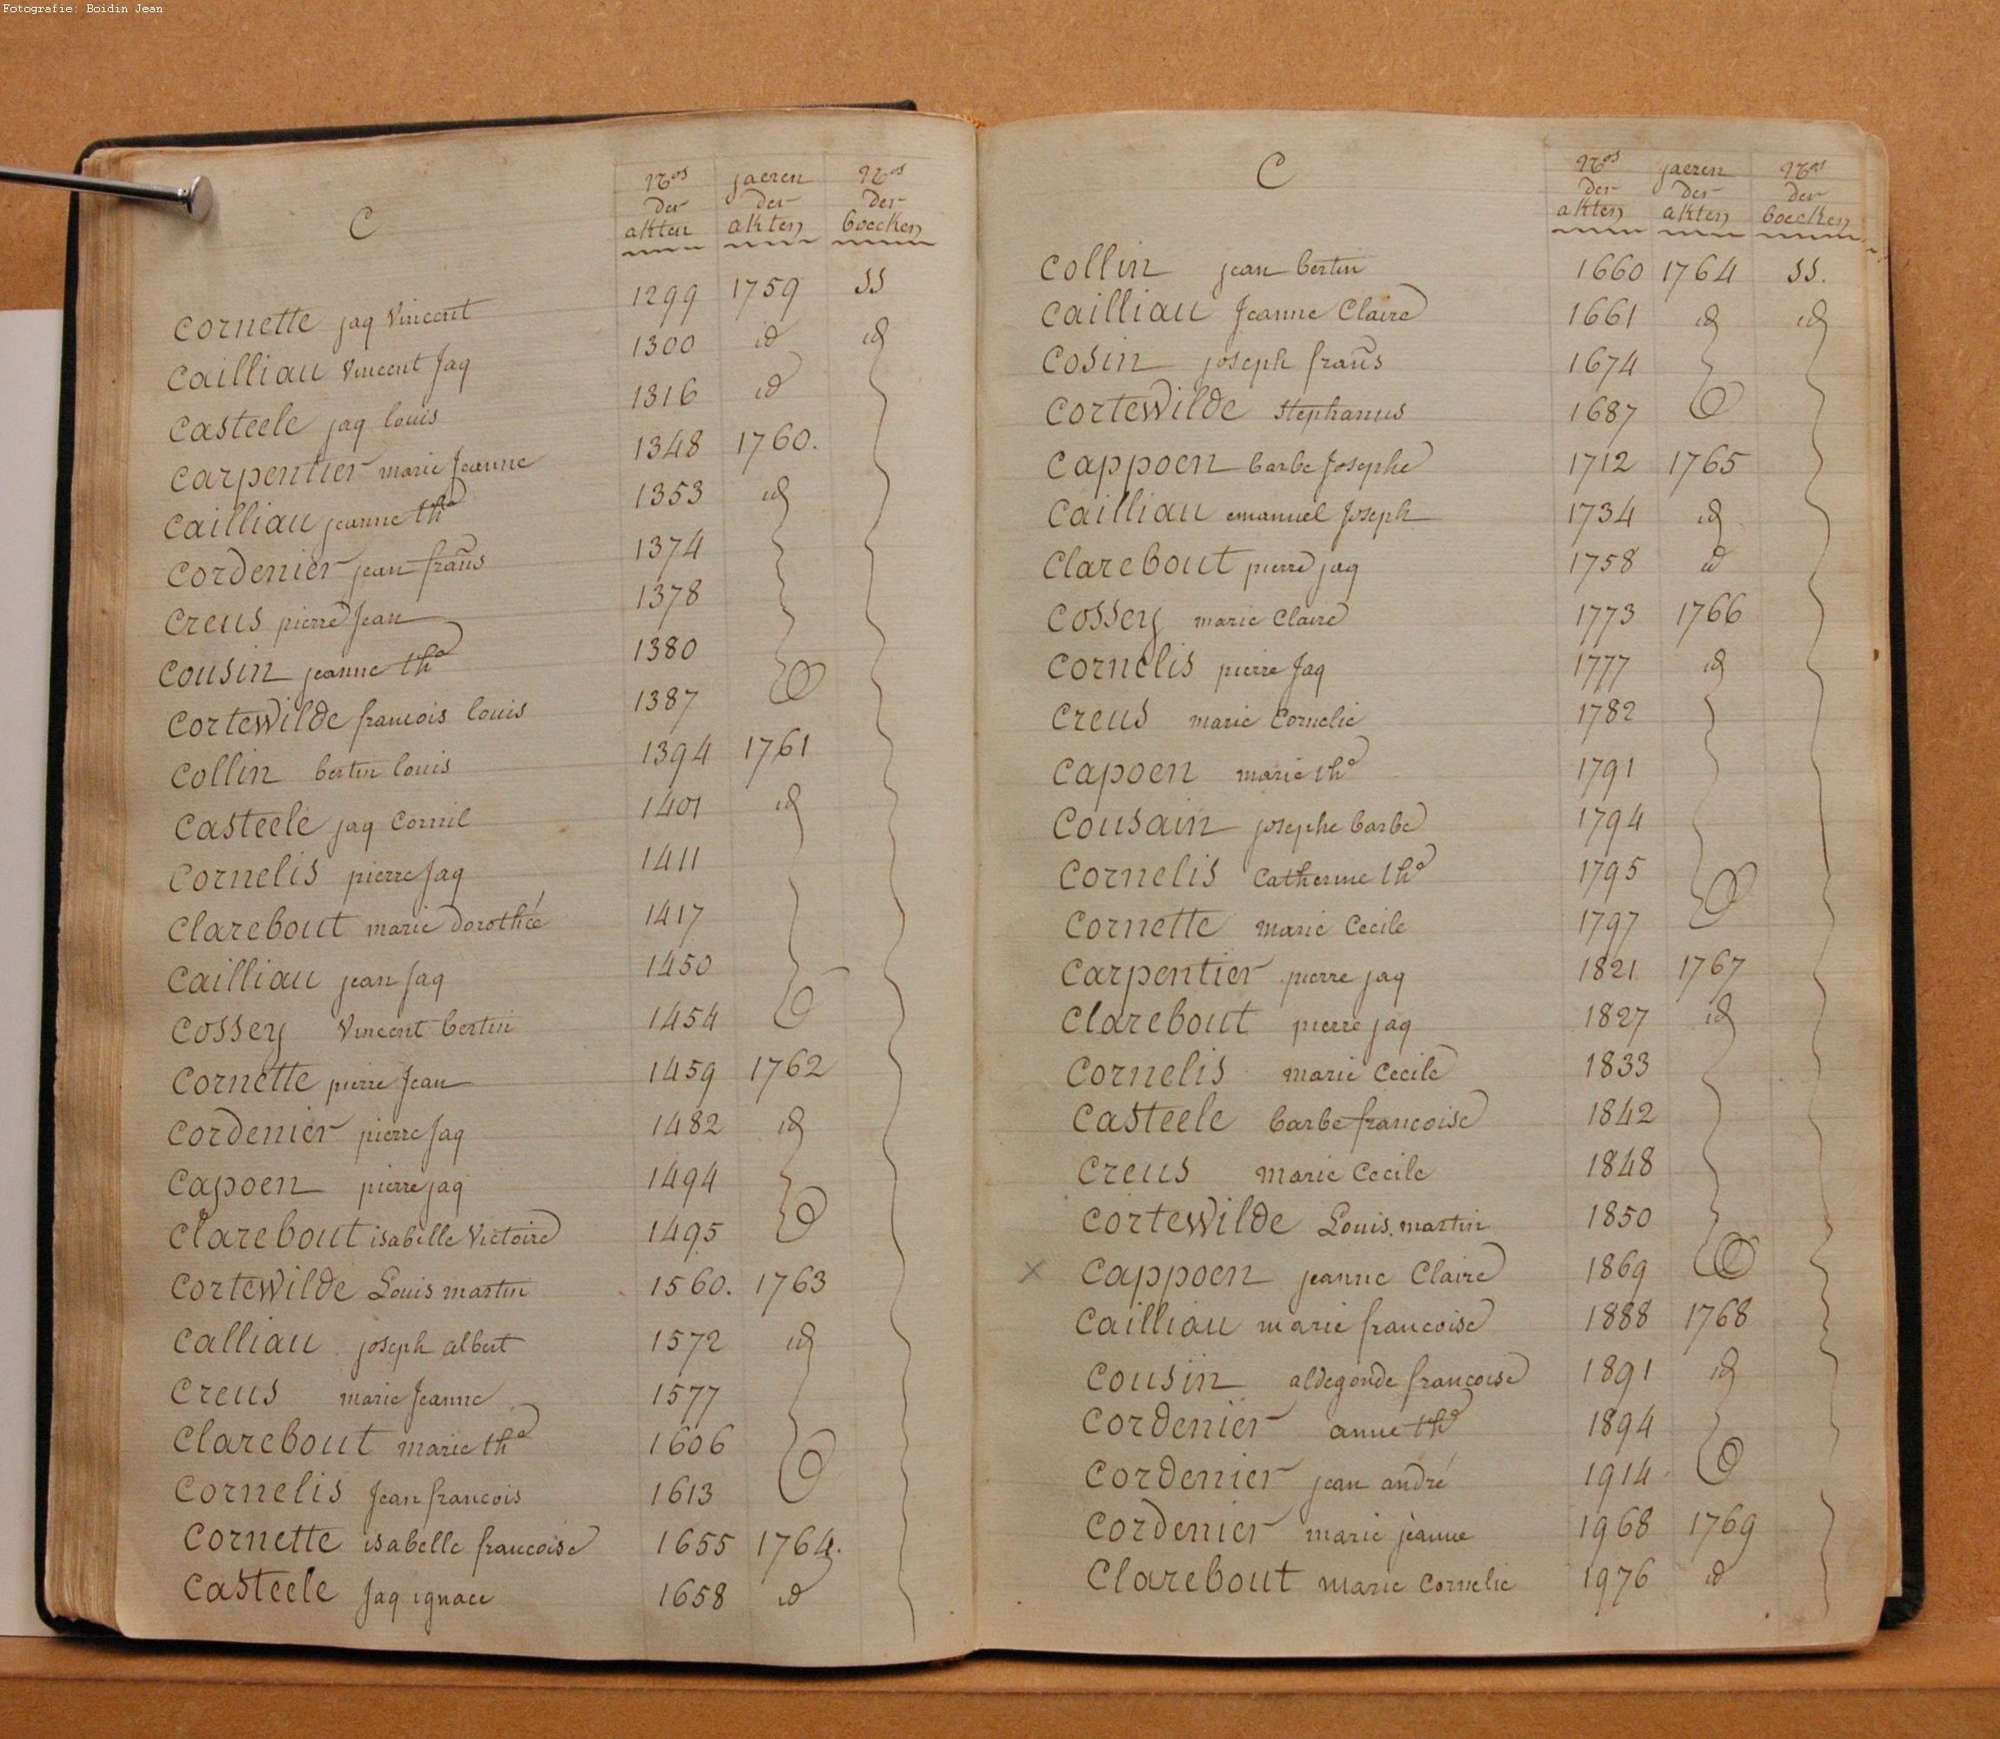 Fotografie: Boidin Jean
C
Nos der akten jaeren der akten Nos der boecken
Cornette jaq Vincent 1299 1759 55
Cailliau Vincent Jaq 1300 id id
Casteele jaq louis 1316 id
Carpentier marie Jeanne 1348 1760.
Cailliau jeanne tha 1353 id
Cordenier jean frans 1374
Creus pierre Jean 1378
Cousin jeanne tha 1380
Cortewilde francois louis 1387
Collin bertin louis 1394 1761
Casteele jaq Cornil 1401 id
Cornelis pierre Jaq 1411
Clarebout marie Dorothée 1417
Cailliau jean Jaq 1450
Cossey Vincent bertin 1454
Cornette pierre Jean 1459 1762
Cordenier pierre Jaq 1482 id
Capoen pierre jaq 1494
Clarebout isabelle Victoire 1495
Cortewilde Louis martin 1560. 1763
Calliau joseph albert 1572 id
Creus marie Jeanne 1577
Clarebout marie tha 1606
Cornelis Jean francois 1613
Cornette isabelle francoise 1655 1764.
Casteele Jaq ignace 1658 id
C
Nos der akten jaeren der akten Nos der boecken
Collin jean bertin 1660 1764 55.
Cailliau Jeanne Claire 1661 id id
Cosin joseph frans 1674
Cortewilde stephanus 1687
Cappoen barbe Josephe 1712 1765
Cailliau emanuel Joseph 1734 id
Clarebout pierre jaq 1758 id
Cossey marie Claire 1773 1766
Cornelis pierre Jaq 1777 id
Creus marie Cornelie 1782
Capoen marie tha 1791
Cousain josephe barbe 1794
Cornelis Catherine tha 1795
Cornette marie Cecile 1797
Carpentier pierre jaq 1821 1767
Clarebout pierre jaq 1827 id
Cornelis marie Cecile 1833
Casteele barbe francoise 1842
Creus marie Cecile 1848
Cortewilde Louis martin 1850
x Cappoen jeanne Claire 1869
Cailliau marie francoise 1888 1768
Cousin aldegonde francoise 1891 id
Cordenier anne tha 1894
Cordenier jean andré 1914
Cordenier marie jeanne 1968 1769
Clarebout marie Cornelie 1976 id